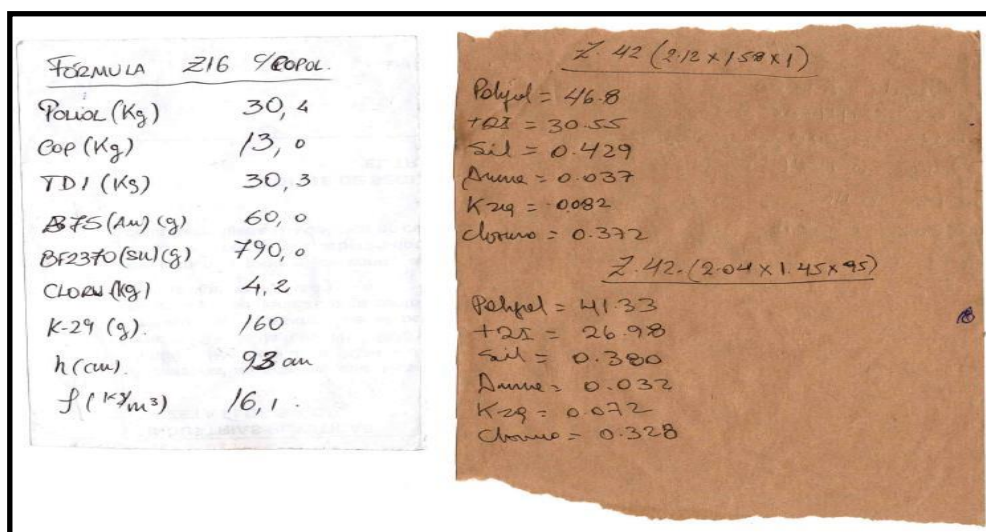 FÓRMULA Z16 C/COPOL.
POLIOL (Kg) 30,4
COP (Kg) 13,0
TDI (Kg) 30,3
B75 (AM) (g) 60,0
BF2370 (SIL) (g) 790,0
CLORU (Kg) 4,2
K-29 (g). 160
h (cm). 93 cm
f (Kg/m³) 16,1.
Z. 42 (2.12 x 1.58 x 1)
Polyol = 46.8
TDI = 30.55
Sil = 0.429
Amine = 0.037
K29 = 0.082
Cloruro = 0.372
Z. 42. (2.04 x 1.45 x 95)
Polyol = 41.33
TDI = 26.98
Sil = 0.380
Amine = 0.032
K29 = 0.072
Cloruro = 0.328